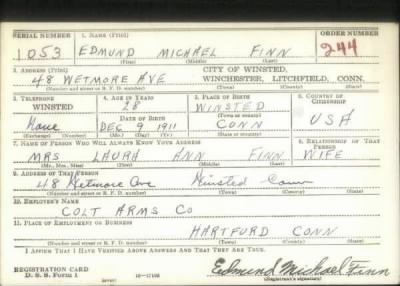 SERIAL NUMBER 1. NAME (Print) ORDER NUMBER
1053 EDMUND MICHAEL FINN 244
(First) (Middle) (Last)
2. ADDRESS (Print) CITY OF WINSTED,
48 WETMORE AVE WINCHESTER, LITCHFIELD, CONN.
(Number and street or R. F. D. number) (Town) (County) (State)
3. TELEPHONE 4. AGE IN YEARS 5. PLACE OF BIRTH 6. COUNTRY OF CITIZENSHIP
WINSTED 28 WINSTED
DATE OF BIRTH (Town or county)
None DEC 9 1911 CONN USA
(Exchange) (Number) (Mo.) (Day) (Yr.) (State or country)
7. NAME OF PERSON WHO WILL ALWAYS KNOW YOUR ADDRESS 8. RELATIONSHIP OF THAT PERSON
MRS LAURA ANN FINN WIFE
(Mr., Mrs., Miss) (First) (Middle) (Last)
9. ADDRESS OF THAT PERSON
48 Wetmore Ave Winsted Conn
(Number and street or R. F. D. number) (Town) (County) (State)
10. EMPLOYER'S NAME
COLT ARMS CO
11. PLACE OF EMPLOYMENT OR BUSINESS
HARTFURD CONN
(Number and street or R. F. D. number) (Town) (County) (State)
I AFFIRM THAT I HAVE VERIFIED ABOVE ANSWERS AND THAT THEY ARE TRUE.
REGISTRATION CARD
D. S. S. Form 1 16-17105 Edmund Michael Finn
(Registrant's signature)